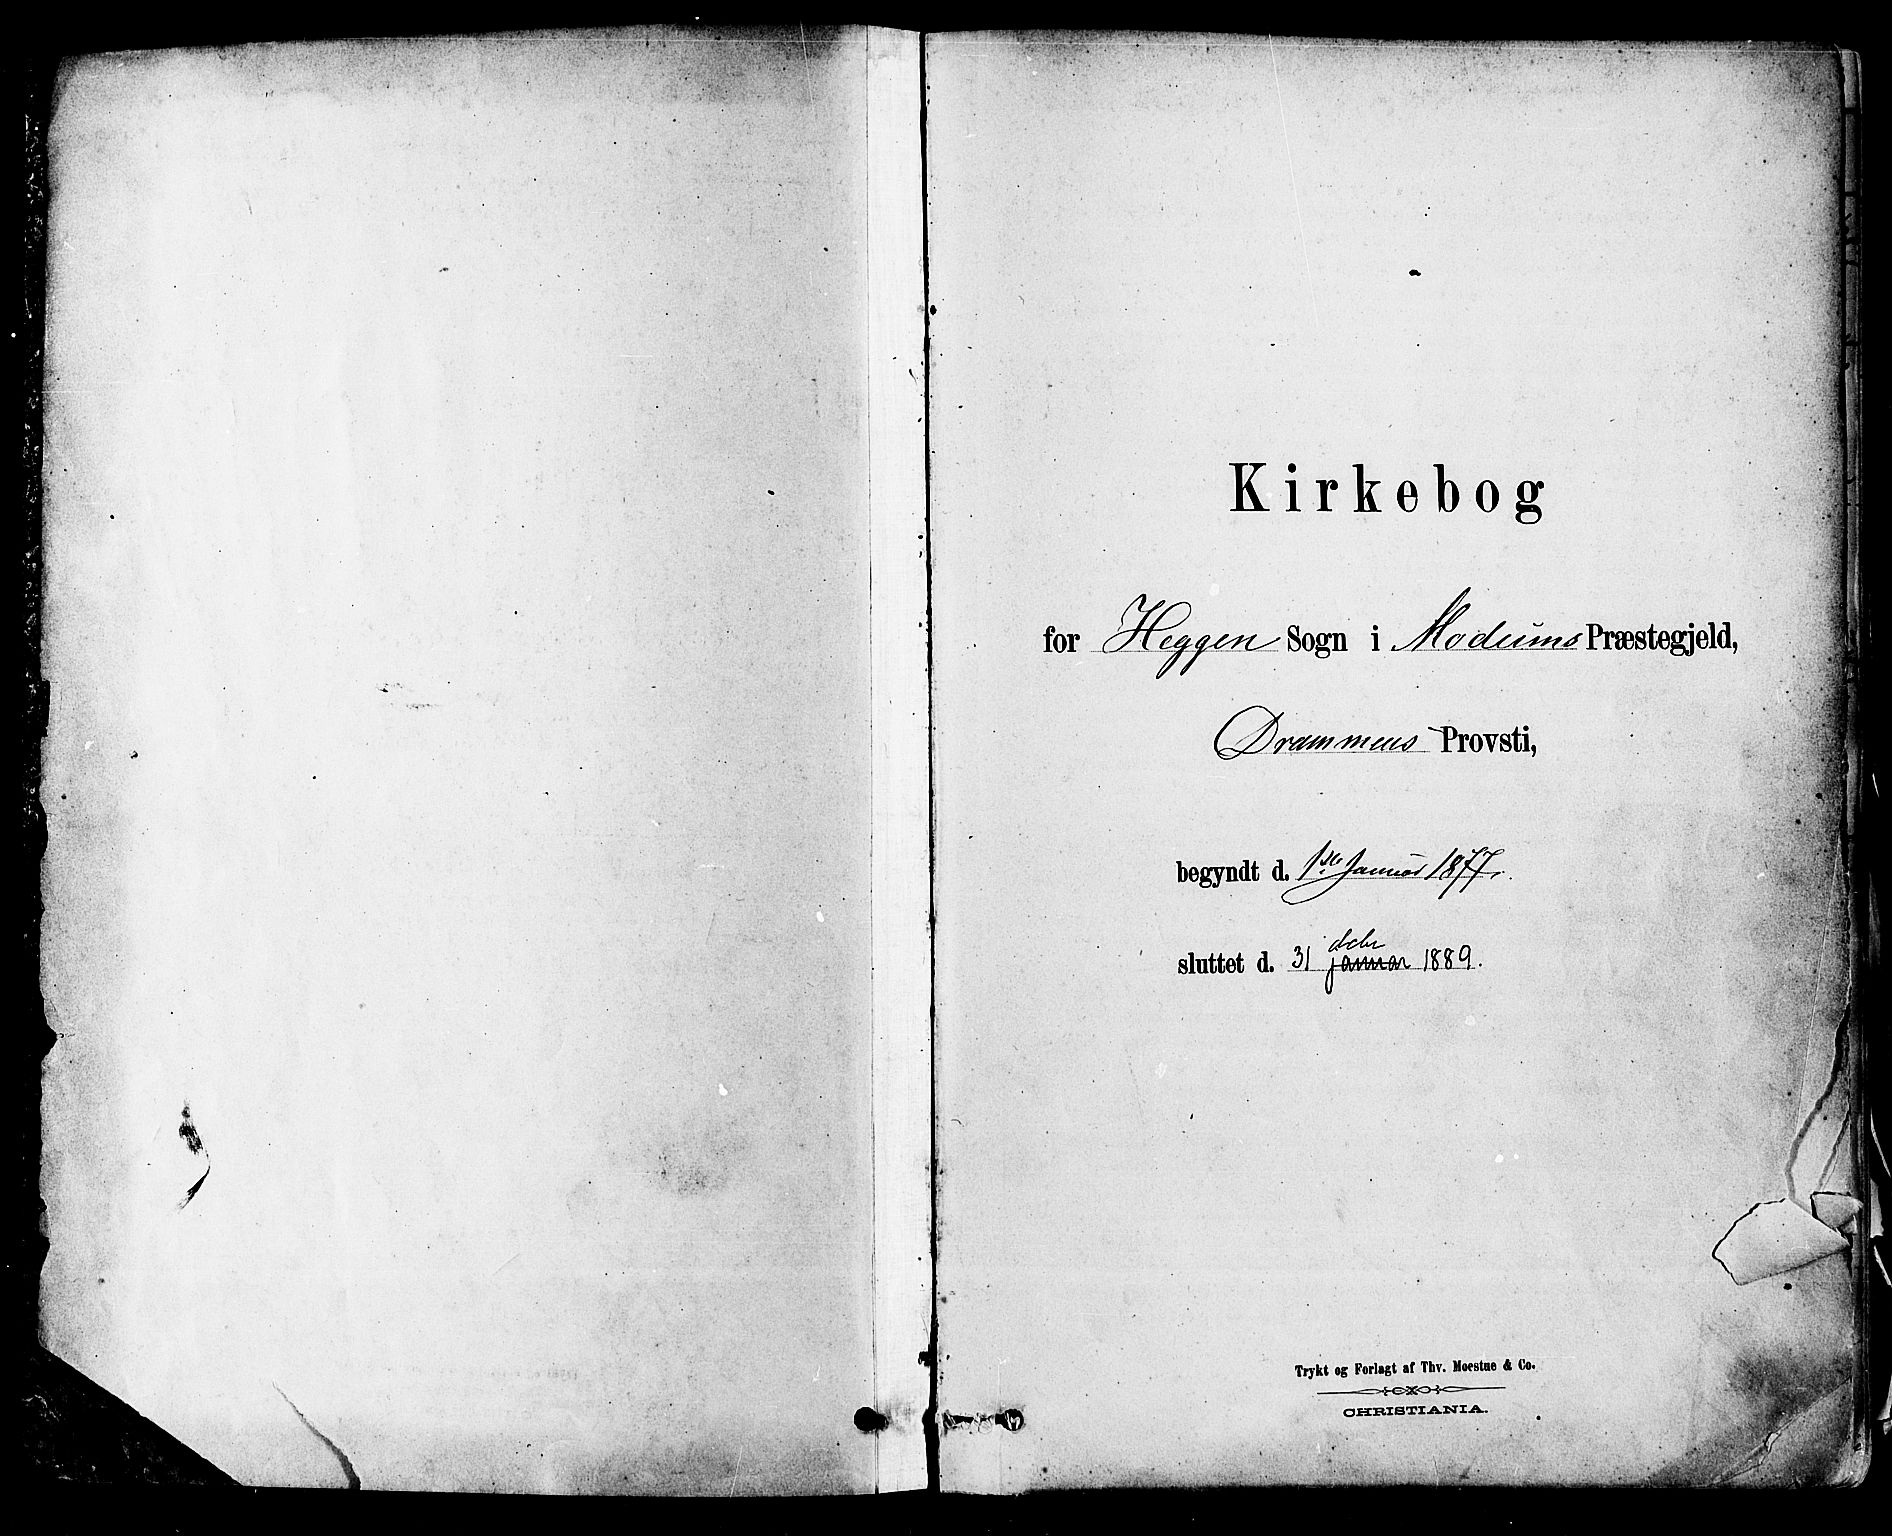 Kirkebog
for Heggen Sogn i Modums Præstegjeld,
Drammens Provsti,
begyndt d. 1ste Januar 1877.
decbr
sluttet d. 31 januar 1889.
Trykt og Forlagt af Thv. Moestue & Co.
CHRISTIANIA.